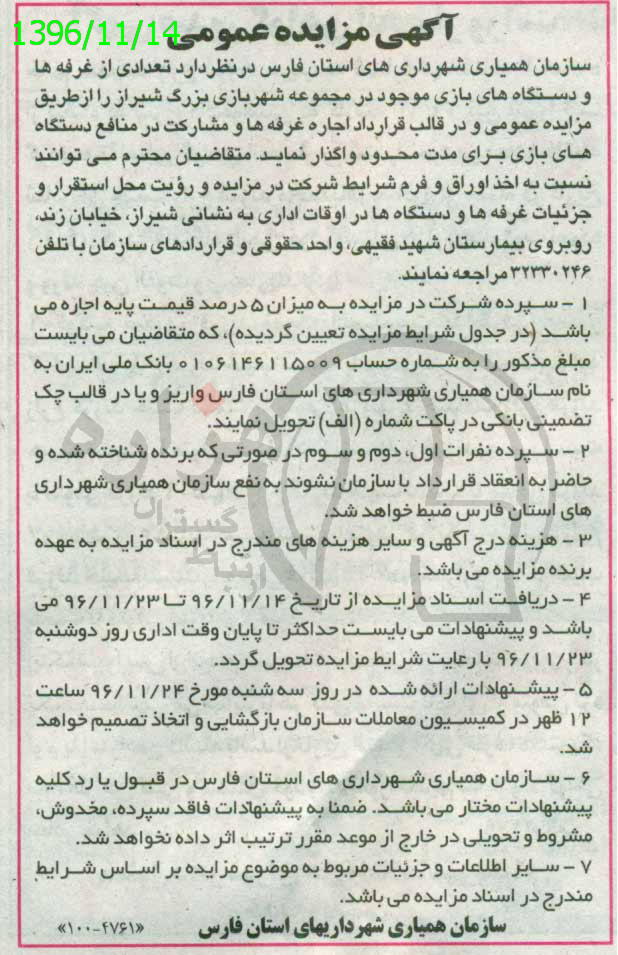 1396/11/14
آگهی مزایده عمومی
سازمان همیاری شهرداری های استان فارس درنظردارد تعدادی از غرفه ها
و دستگاه های بازی موجود در مجموعه شهربازی بزرگ شیراز را ازطریق
مزایده عمومی و در قالب قرارداد اجاره غرفه ها و مشارکت در منافع دستگاه
های بازی برای مدت محدود واگذار نماید. متقاضیان محترم می توانند
نسبت به اخذ اوراق و فرم شرایط شرکت در مزایده و رؤیت محل استقرار و
جزئیات غرفه ها و دستگاه ها در اوقات اداری به نشانی شیراز، خیابان زند،
روبروی بیمارستان شهید فقیهی، واحد حقوقی و قراردادهای سازمان با تلفن
۳۲۳۳۰۲۴۶ مراجعه نمایند.
۱ - سپرده شرکت در مزایده به میزان ۵ درصد قیمت پایه اجاره می
باشد (در جدول شرایط مزایده تعیین گردیده)، که متقاضیان می بایست
مبلغ مذکور را به شماره حساب ۰۱۰۶۱۴۶۱۱۵۰۰۹ بانک ملی ایران به
نام سازمان همیاری شهرداری های استان فارس واریز و یا در قالب چک
تضمینی بانکی در پاکت شماره (الف) تحویل نمایند.
۲ - سپرده نفرات اول، دوم و سوم در صورتی که برنده شناخته شده و
حاضر به انعقاد قرارداد با سازمان نشوند به نفع سازمان همیاری شهرداری
های استان فارس ضبط خواهد شد.
۳ - هزینه درج آگهی و سایر هزینه های مندرج در اسناد مزایده به عهده
برنده مزایده می باشد.
۴ - دریافت اسناد مزایده از تاریخ ۹۶/۱۱/۱۴ تا ۹۶/۱۱/۲۳ می
باشد و پیشنهادات می بایست حداکثر تا پایان وقت اداری روز دوشنبه
۹۶/۱۱/۲۳ با رعایت شرایط مزایده تحویل گردد.
۵ - پیشنهادات ارائه شده در روز سه شنبه مورخ ۹۶/۱۱/۲۴ ساعت
۱۲ ظهر در کمیسیون معاملات سازمان بازگشایی و اتخاذ تصمیم خواهد
شد.
۶ - سازمان همیاری شهرداری های استان فارس در قبول یا رد کلیه
پیشنهادات مختار می باشد. ضمنا به پیشنهادات فاقد سپرده، مخدوش،
مشروط و تحویلی در خارج از موعد مقرر ترتیب اثر داده نخواهد شد.
۷ - سایر اطلاعات و جزئیات مربوط به موضوع مزایده بر اساس شرایط
مندرج در اسناد مزایده می باشد.
سازمان همیاری شهرداریهای استان فارس «۱۰۰-۴۷۶۱»
هزاره
گسترال
ارتباط